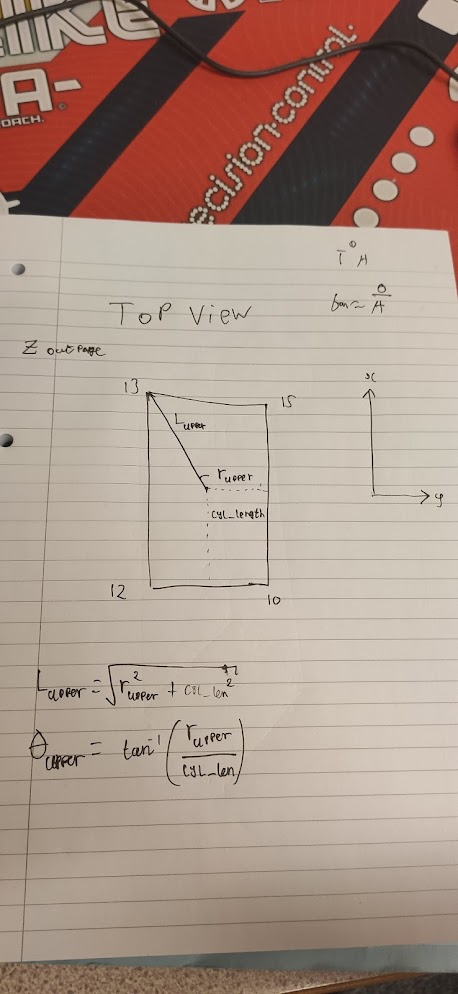 A-
OACH.
ecision-control.
T O A
tan = O/A
TOP VIEW
Z out page
13
15
x
L_upper
r_upper
cyl_length
y
12
10
L_upper = √(r_upper² + cyl_len²)
θ_upper = tan⁻¹(r_upper/cyl_len)